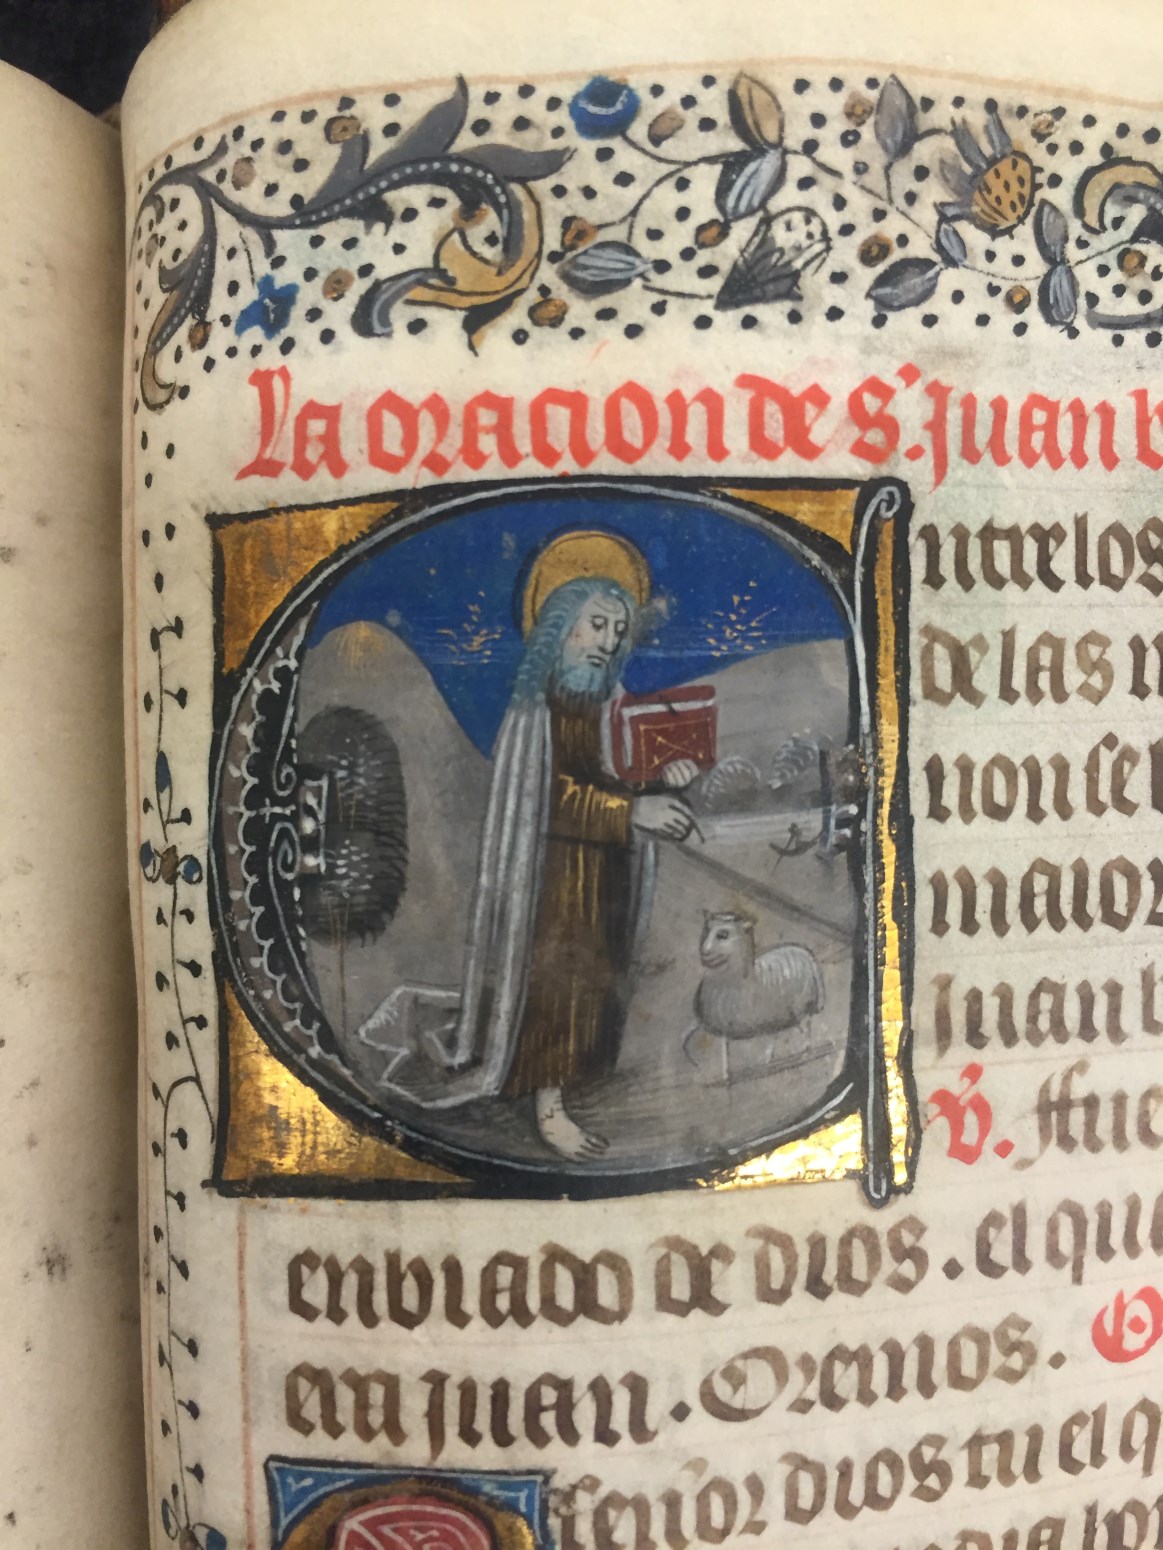 La oracion de s'. Juan b
Entre los
de las m
non se l
maior
Juan b
V. ffue
enbiado de dios. el qui
era juan. Oremos. O
señor dios tu el q